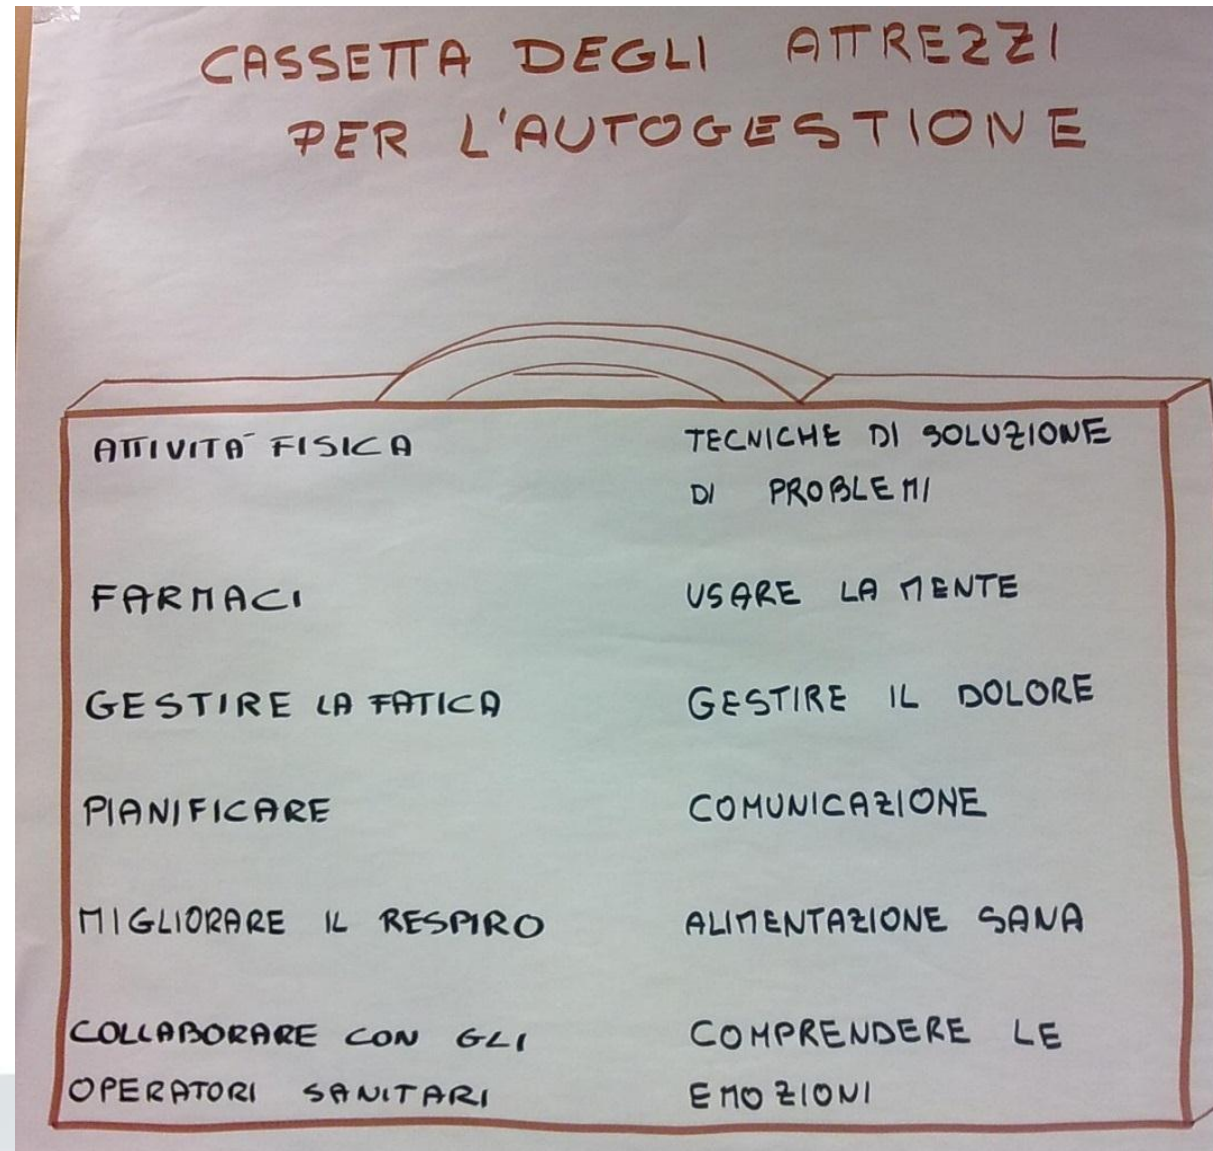 CASSETTA DEGLI ATTREZZI
PER L'AUTOGESTIONE
ATTIVITA' FISICA
FARMACI
GESTIRE LA FATICA
PIANIFICARE
MIGLIORARE IL RESPIRO
COLLABORARE CON GLI
OPERATORI SANITARI
TECNICHE DI SOLUZIONE
DI PROBLEMI
USARE LA MENTE
GESTIRE IL DOLORE
COMUNICAZIONE
ALIMENTAZIONE SANA
COMPRENDERE LE
EMOZIONI